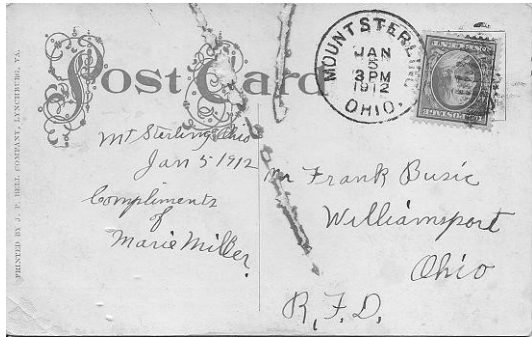 PRINTED BY J. P. BELL COMPANY, LYNCHBURG, VA.
Post Card
MOUNT STERLING
JAN
5
3 PM
1912
OHIO.
Mt Sterling Ohio
Jan 5 1912
Compliments
of
Marie Miller.
Mr Frank Busic
Williamsport
Ohio
R.F.D.